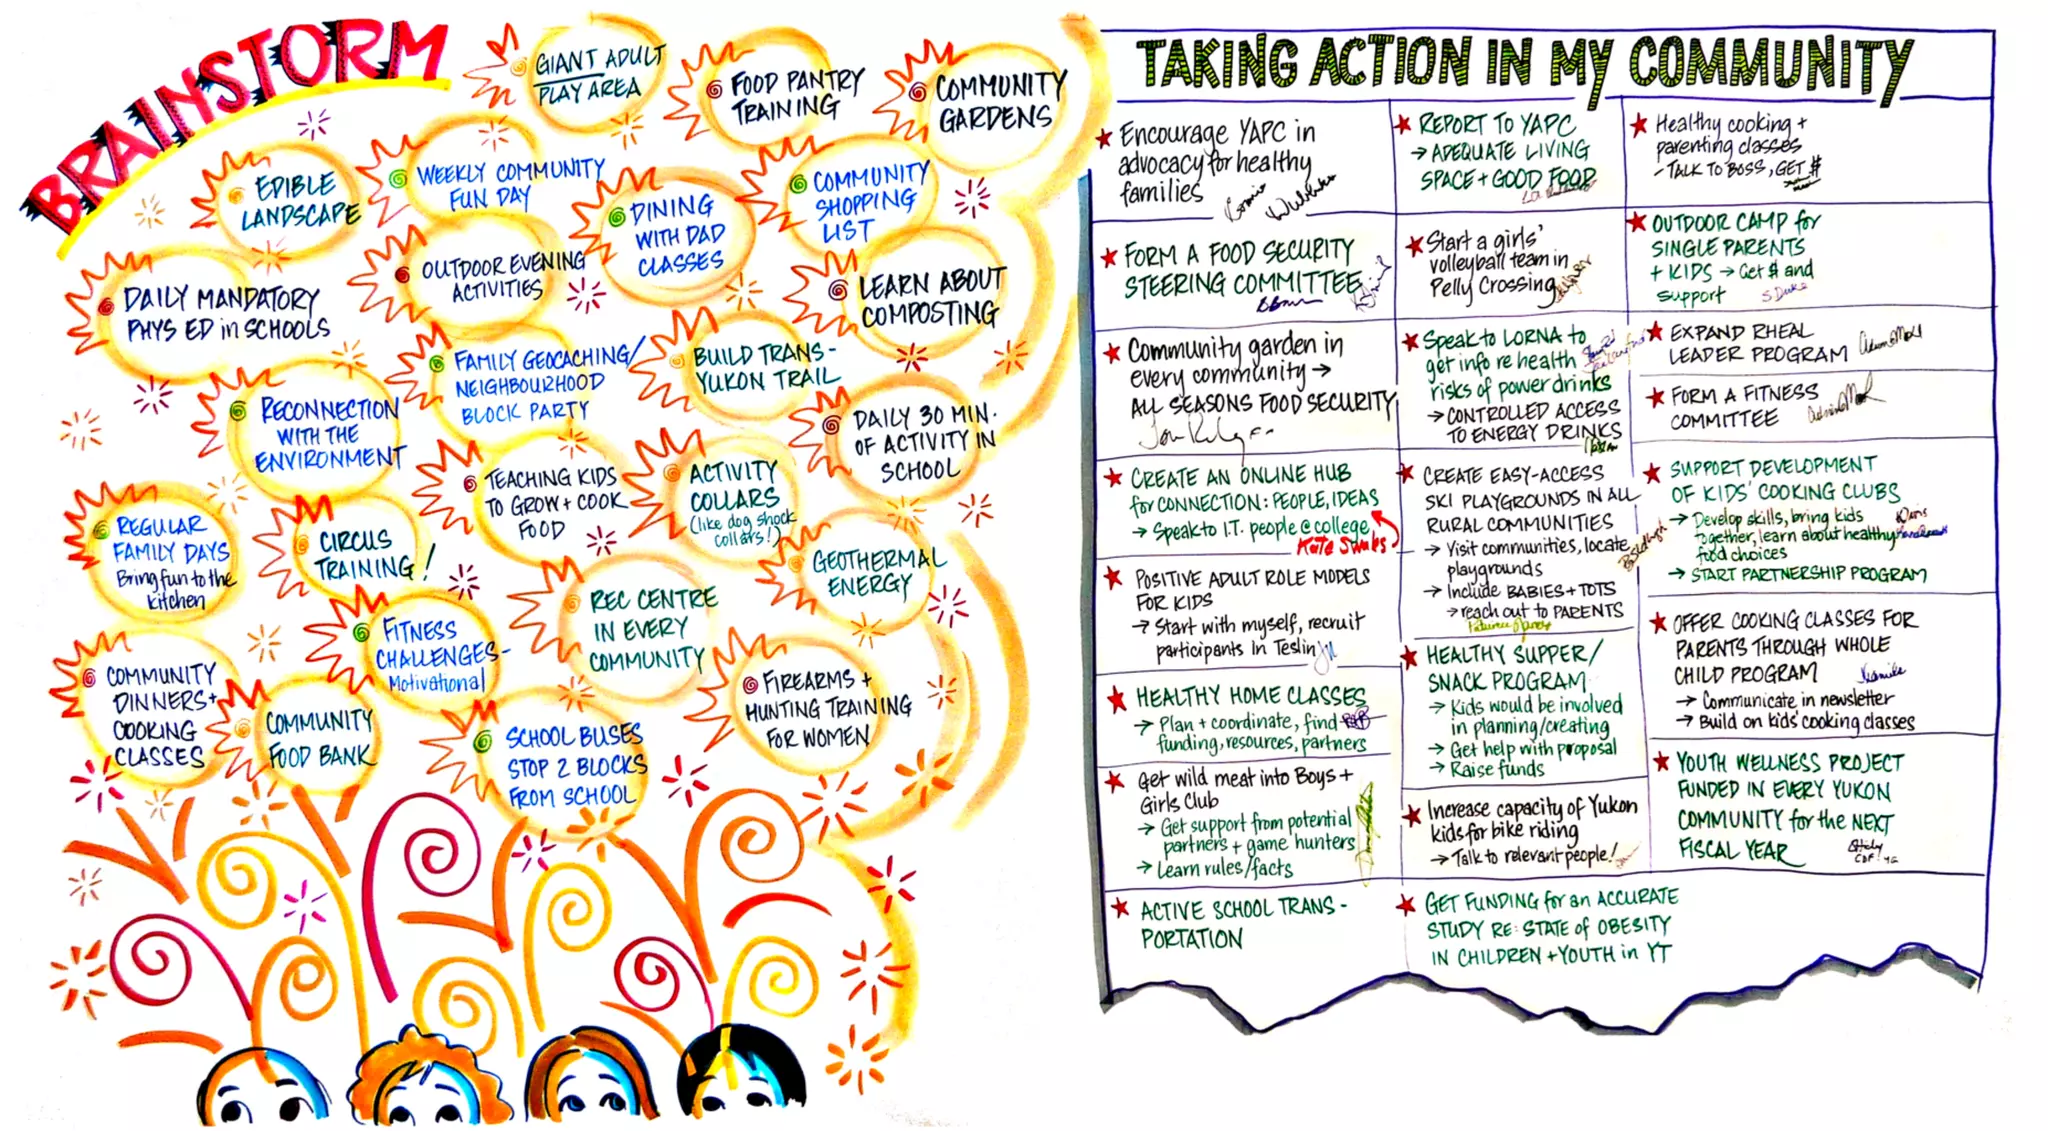 BRAINSTORM
GIANT ADULT
PLAY AREA
FOOD PANTRY
TRAINING
COMMUNITY
GARDENS
EDIBLE
LANDSCAPE
WEEKLY COMMUNITY
FUN DAY
DINING
WITH DAD
CLASSES
COMMUNITY
SHOPPING
LIST
DAILY MANDATORY
PHYS ED in SCHOOLS
OUTDOOR EVENING
ACTIVITIES
LEARN ABOUT
COMPOSTING
RECONNECTION
WITH THE
ENVIRONMENT
FAMILY GEOCACHING/
NEIGHBOURHOOD
BLOCK PARTY
BUILD TRANS-
YUKON TRAIL
DAILY 30 MIN.
OF ACTIVITY IN
SCHOOL
REGULAR
FAMILY DAYS
Bring fun to the
kitchen
CIRCUS
TRAINING!
TEACHING KIDS
TO GROW + COOK
FOOD
ACTIVITY
COLLARS
(like dog shock
collars!)
GEOTHERMAL
ENERGY
COMMUNITY
DINNERS +
COOKING
CLASSES
FITNESS
CHALLENGES-
Motivational
REC CENTRE
IN EVERY
COMMUNITY
FIREARMS +
HUNTING TRAINING
FOR WOMEN
COMMUNITY
FOOD BANK
SCHOOL BUSES
STOP 2 BLOCKS
FROM SCHOOL
TAKING ACTION IN MY COMMUNITY
Encourage YAPC in
advocacy for healthy
families
FORM A FOOD SECURITY
STEERING COMMITTEE
Community garden in
every community →
ALL SEASONS FOOD SECURITY
CREATE AN ONLINE HUB
for CONNECTION: PEOPLE, IDEAS
→ Speak to I.T. people @ college
Kate Swales
POSITIVE ADULT ROLE MODELS
FOR KIDS
→ Start with myself, recruit
participants in Teslin
HEALTHY HOME CLASSES
→ Plan + coordinate, find
funding, resources, partners
Get wild meat into Boys +
Girls Club
→ Get support from potential
partners + game hunters
→ Learn rules/facts
ACTIVE SCHOOL TRANS-
PORTATION
REPORT TO YAPC
→ ADEQUATE LIVING
SPACE + GOOD FOOD
Start a girls'
volleyball team in
Pelly Crossing
Speak to LORNA to
get info re health
risks of power drinks
→ CONTROLLED ACCESS
TO ENERGY DRINKS
CREATE EASY-ACCESS
SKI PLAYGROUNDS IN ALL
RURAL COMMUNITIES
→ Visit communities, locate
playgrounds
→ Include BABIES + TOTS
→ reach out to PARENTS
HEALTHY SUPPER/
SNACK PROGRAM
→ Kids would be involved
in planning/creating
→ Get help with proposal
→ Raise funds
Increase capacity of Yukon
kids for bike riding
→ Talk to relevant people!
GET FUNDING for an ACCURATE
STUDY RE: STATE of OBESITY
IN CHILDREN + YOUTH in YT
Healthy cooking +
parenting classes
- TALK TO BOSS, GET $
OUTDOOR CAMP for
SINGLE PARENTS
+ KIDS → Get $ and
support
EXPAND RHEAL
LEADER PROGRAM
FORM A FITNESS
COMMITTEE
SUPPORT DEVELOPMENT
OF KIDS' COOKING CLUBS
→ Develop skills, bring kids
together, learn about healthy
food choices
→ START PARTNERSHIP PROGRAM
OFFER COOKING CLASSES FOR
PARENTS THROUGH WHOLE
CHILD PROGRAM
→ Communicate in newsletter
→ Build on kids' cooking classes
YOUTH WELLNESS PROJECT
FUNDED IN EVERY YUKON
COMMUNITY for the NEXT
FISCAL YEAR